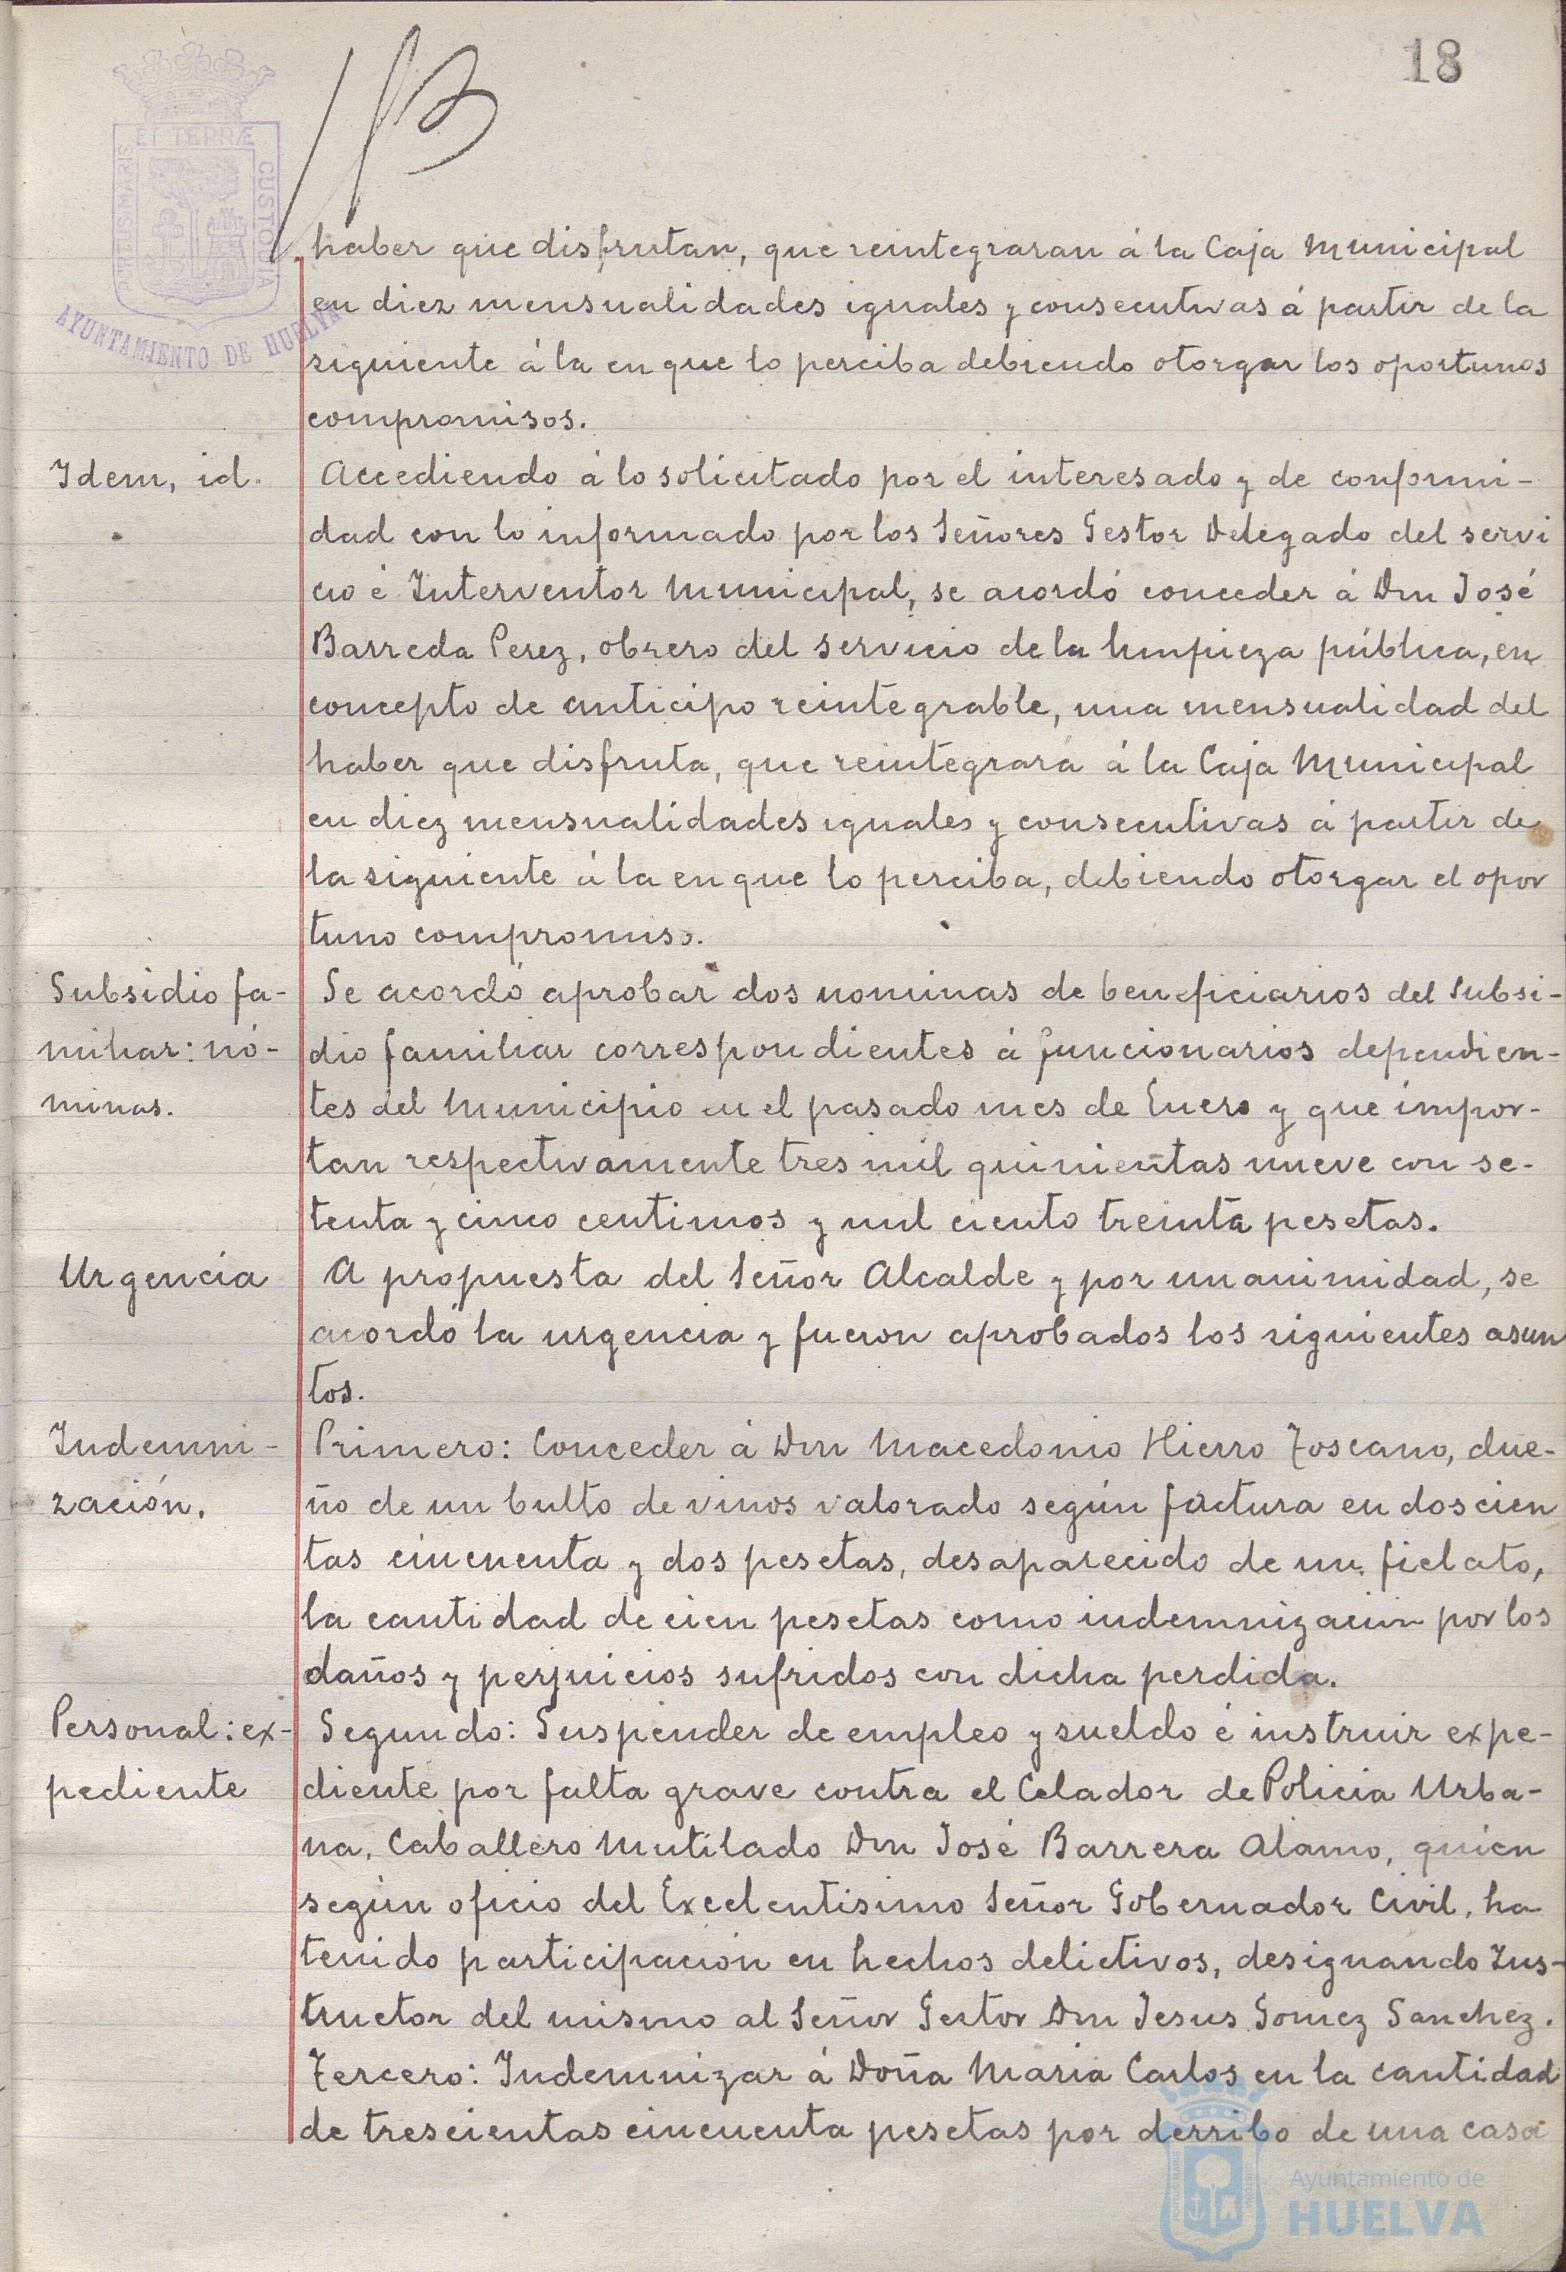 18
ET TERRÆ
CUSTODIA
AYUNTAMIENTO DE HUELVA
haber que disfrutan, que reintegraran á la Caja Municipal
en diez mensualidades iguales y consecutivas á partir de la
siguiente á la en que lo perciba debiendo otorgar los oportunos
compromisos.
Idem, id.
Accediendo á lo solicitado por el interesado y de conformi-
dad con lo informado por los Señores Gestor Delegado del servi
cio é Interventor Municipal, se acordó conceder á Don José
Barreda Perez, obrero del servicio de la limpieza pública, en
concepto de anticipo reintegrable, una mensualidad del
haber que disfruta, que reintegrará á la Caja Municipal
en diez mensualidades iguales y consecutivas á partir de
la siguiente á la en que lo perciba, debiendo otorgar el opor
tuno compromiso.
Subsidio fa-
miliar: nó-
minas.
Se acordó aprobar dos nominas de beneficiarios del Subsi-
dio familiar correspondientes á funcionarios dependien-
tes del Municipio en el pasado mes de Enero y que impor-
tan respectivamente tres mil quinientas nueve con se-
tenta y cinco centimos y mil ciento treinta pesetas.
Urgencia
A propuesta del Señor Alcalde y por unanimidad, se
acordó la urgencia y fueron aprobados los siguientes asun
tos.
Indemni-
zación.
Primero: Conceder á Don Macedonio Hierro Toscano, due-
ño de un bulto de vinos valorado según factura en doscien
tas cincuenta y dos pesetas, desaparecido de un fielato,
la cantidad de cien pesetas como indemnización por los
daños y perjuicios sufridos con dicha perdida.
Personal: ex-
pediente
Segundo: Suspender de empleo y sueldo é instruir expe-
diente por falta grave contra el Celador de Policia Urba-
na, Caballero Mutilado Don José Barrera Alamo, quien
según oficio del Excelentisimo Señor Gobernador Civil, ha
tenido participación en hechos delictivos, designando Ins-
tructor del mismo al Señor Gestor Don Jesus Gomez Sanchez.
Tercero: Indemnizar á Doña Maria Carlos en la cantidad
de trescientas cincuenta pesetas por derribo de una casa
Ayuntamiento de
HUELVA